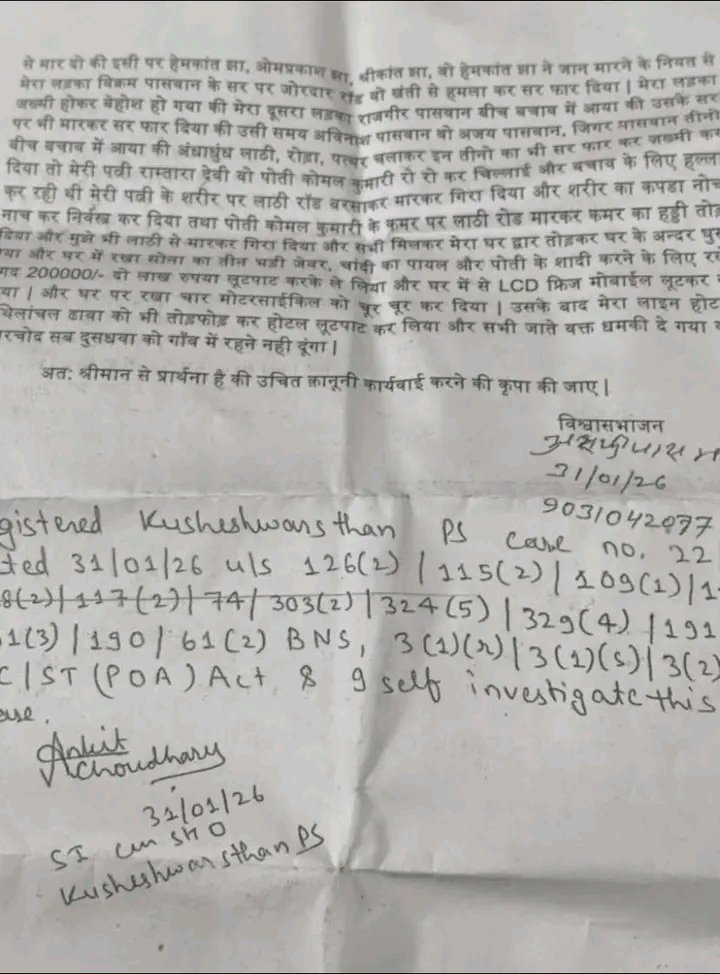 से मार दो की इसी पर हेमकांत झा, ओमप्रकाश झा, श्रीकांत झा, वो हेमकांत झा ने जान मारने के नियत से
मेरा लड़का बिक्रम पासवान के सर पर जोरदार रॉड वो खंती से हमला कर सर फार दिया | मेरा लडका
जख्मी होकर बेहोश हो गया की मेरा दूसरा लड़का राजगीर पासवान बीच बचाव में आया की उसके सर
पर भी मारकर सर फार दिया की उसी समय अविनाश पासवान वो अजय पासवान, जिगर पासवान तीनो
बीच बचाव में आया की अंधाधुंध लाठी, रोड़ा, पत्थर चलाकर इन तीनो का भी सर फार कर जख्मी कर
दिया तो मेरी पत्नी रामतारा देवी वो पोती कोमल कुमारी रो रो कर चिल्लाई और बचाव के लिए हल्ला
कर रही थी मेरी पत्नी के शरीर पर लाठी रॉड वरसाकर मारकर गिरा दिया और शरीर का कपडा नोच
नाच कर निर्वस्त्र कर दिया तथा पोती कोमल कुमारी के कमर पर लाठी रोड मारकर कमर का हड्डी तोड़
दिया और मुझे भी लाठी से मारकर गिरा दिया और सभी मिलकर मेरा घर द्वार तोड़कर घर के अन्दर घुस
या और घर में रखा सोना का तीन भड़ी जेवर, चांदी का पायल और पोती के शादी करने के लिए
गद 200000/- दो लाख रुपया लूटपाट करके ले लिया और घर में से LCD फ्रिज मोबाईल लूटकर
या | और घर पर रखा चार मोटरसाईकिल को चूर चूर कर दिया | उसके बाद मेरा लाइन होट
ढावा को भी तोड़फोड़ कर होटल लूटपाट कर लिया और सभी जाते वक्त धमकी दे गया
रचोद सब दुसधवा को गाँव में रहने नही दूंगा |
अत: श्रीमान से प्रार्थना है की उचित क़ानूनी कार्यवाई करने की कृपा की जाए |
विश्वासभाजन
31/01/26
9031042077
gistered Kusheshwarsthan PS case no. 22
ted 31/01/26 u/s 126(2) | 115(2) | 109(1) | 1
8(2) | 117(2) | 74 | 303(2) | 324(5) | 329(4) | 191
1(3) | 190 | 61(2) BNS, 3(1)(r) | 3(1)(s) | 3(2)
C/ST (POA) Act & I self investigate this
ase.
Ankit
Choudhary
31/01/26
SI cum SHO
Kusheshwarsthan PS